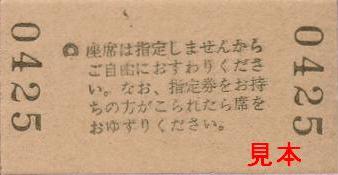 0425
座席は指定しませんから
ご自由におすわりくださ
い。なお、指定券をお持
ちの方がこられたら席を
おゆずりください。
0425
見本